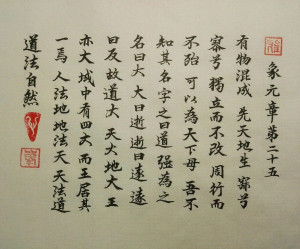 象元章第二十五
有物混成 先天地生 寂兮
寥兮 獨立而不改 周行而
不殆 可以為天下母 吾不
知其名 字之曰道 強為之
名曰大 大曰逝 逝曰遠 遠
曰反 故道大 天大 地大 王
亦大 域中有四大 而王居其
一焉 人法地 地法天 天法道
道法自然